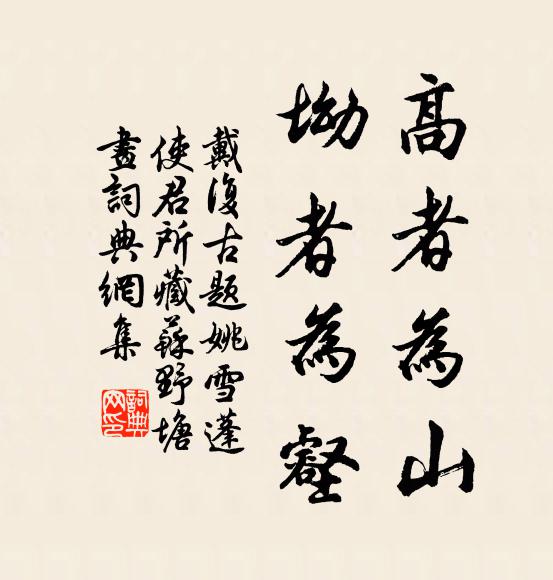 高者為山
坳者為壑
戴復古題姚雪蓬
使君所藏蘇野塘
畫詞典網集
詞典
网印